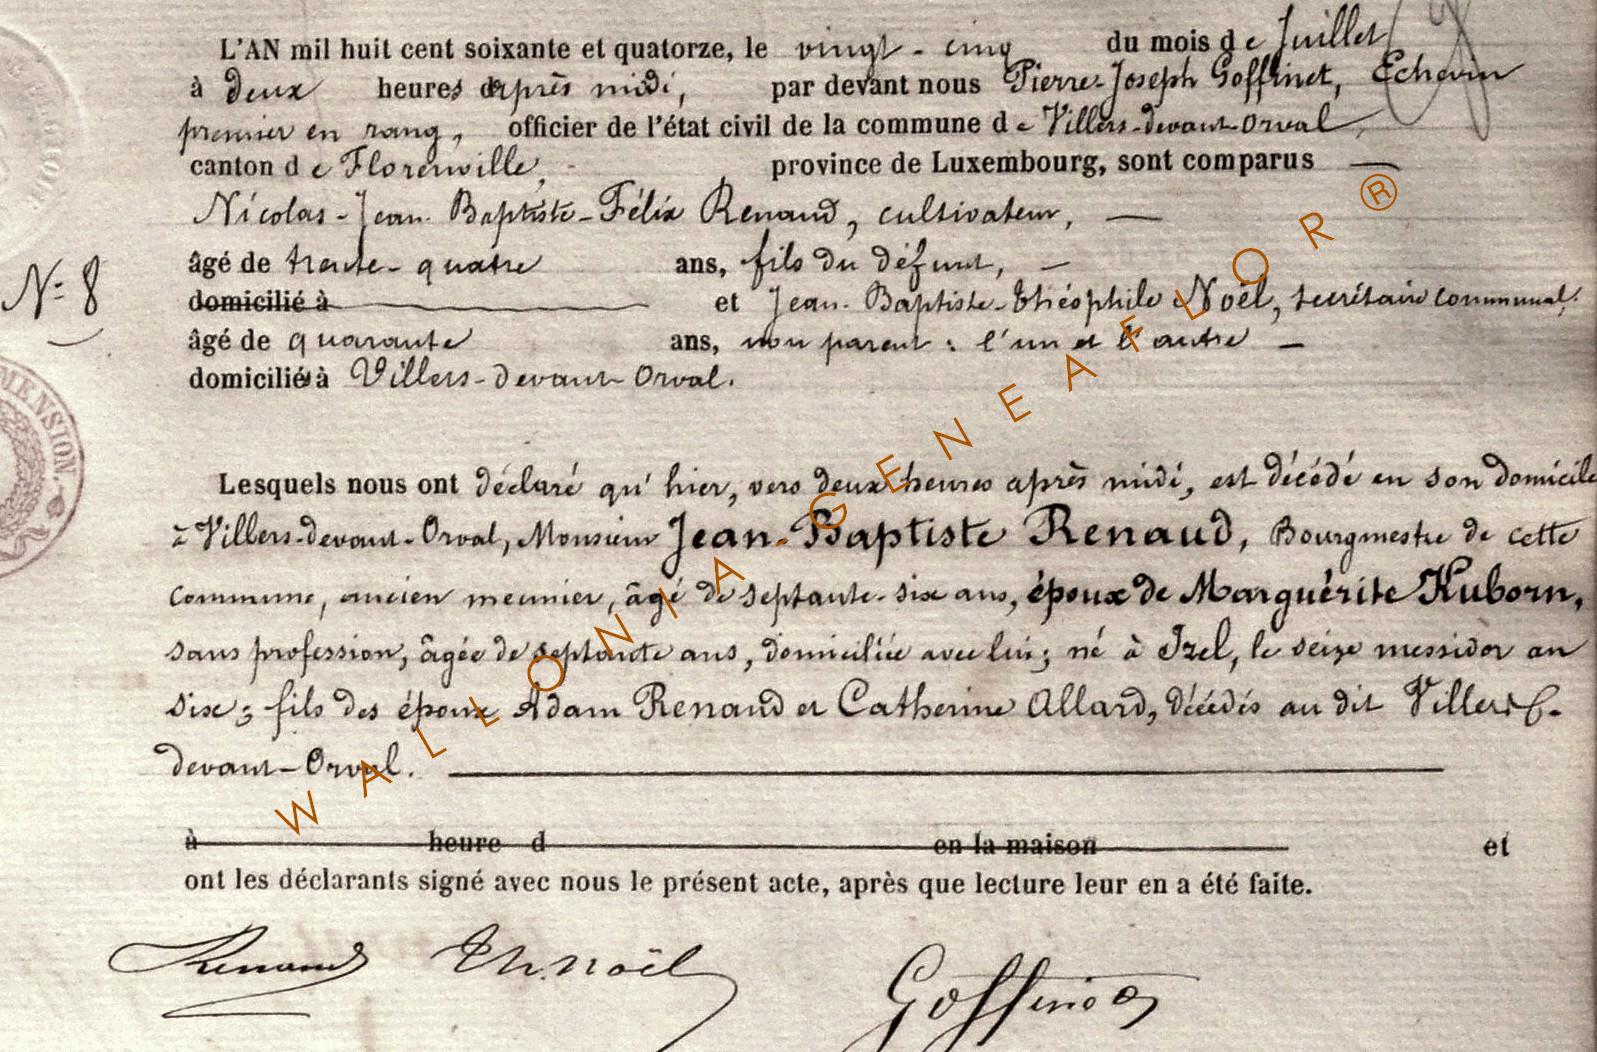 L'AN mil huit cent soixante et quatorze, le vingt-cinq du mois de Juillet
à deux heures après midi, par devant nous Pierre-Joseph Goffinet, Echevin
premier en rang, officier de l'état civil de la commune de Villers-devant-Orval,
canton de Florenville, province de Luxembourg, sont comparus
Nicolas-Jean-Baptiste-Félix Renaud, cultivateur,
âgé de trente-quatre ans, fils du défunt,
N° 8
domicilié à et Jean-Baptiste-Théophile Noël, secrétaire communal,
âgé de quarante ans, non parent : l'un et l'autre
domiciliés à Villers-devant-Orval.
MENSION
Lesquels nous ont déclaré qu'hier, vers deux heures après midi, est décédé en son domicile
à Villers-devant-Orval, Monsieur Jean-Baptiste Renaud, Bourgmestre de cette
commune, ancien meunier, âgé de septante-six ans, époux de Marguérite Kuborn,
sans profession, âgée de septante ans, domiciliée avec lui; né à Izel, le seize messidor an
six; fils des époux Adam Renaud et Catherine Allard, décédés au dit Villers-
devant-Orval.
à heure d en la maison et
ont les déclarants signé avec nous le présent acte, après que lecture leur en a été faite.
Renaud Th. Noël Goffinet
WALLONIA GENEAFLOR ®